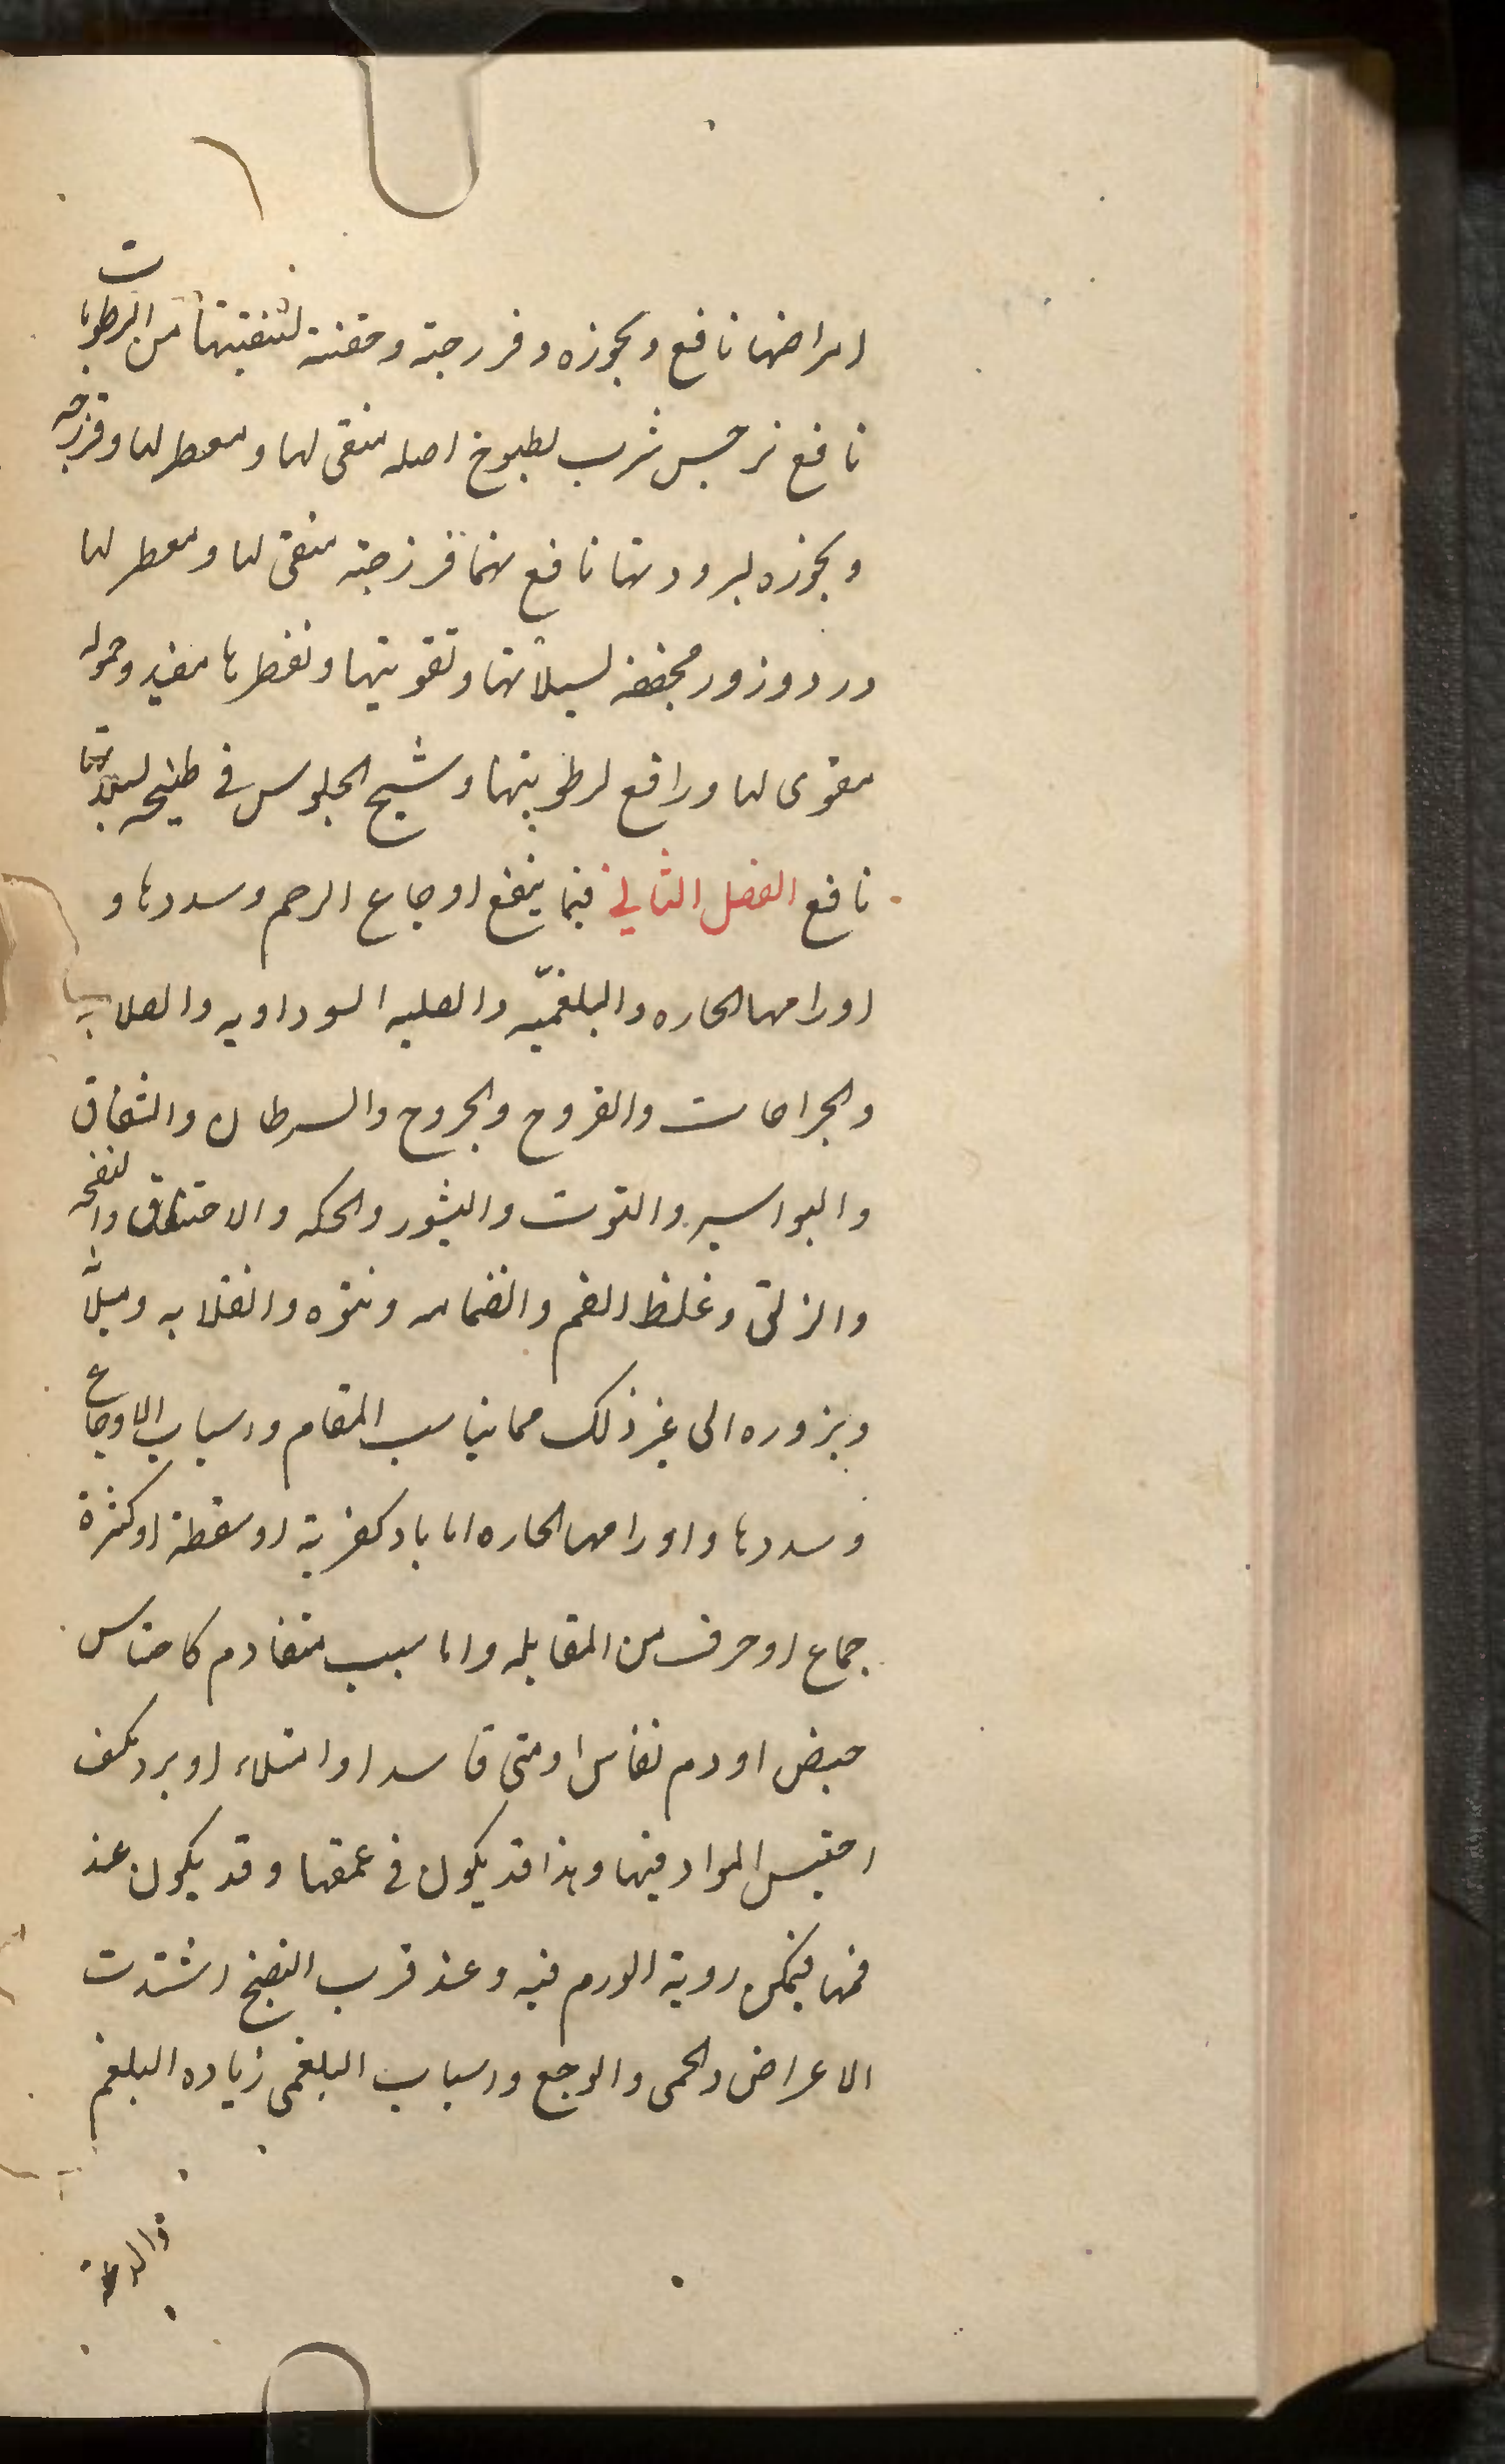 امراضها نافع وبخوره وفرزجة وحقنة لتنقيتها من الرطوبات
نافع نرجس شرب لطبوخ اصله منقى لها ومعطر لها وفرزجه
وبخوره لبرودتها نافع نما فرزجة منقى لها ومعطر لها
ورد وزرور مجففه لسيلانها وتقويتها وتعطرها مفيد وحموله
مقوى لها ورافع لرطوبتها وشيح الجلوس في طبيخه لسيلانها
نافع الفصل الثاني فيما ينفع اوجاع الرحم وسددها و
اورامها الحاره والبلغميّه والصلبه السوداويه والصلابه
والجراحات والقروح والجروح والسرطان والشقاق
والبواسير والتوت والبثور والحكه والاختناق والنفخه
والزلق وغلظ الفم وانضمامه ونتوه وانقلابه وميلانه
وبروزه الى غير ذلك مما يناسب المقام واسباب الاوجاع
وسددها واورامها الحاره اما باد كضربة او سقطة او كثرة
جماع او خرق من القابله واما سبب متقادم كاحتباس
حيض او دم نفاس او منى فاسد او امتلاء او برد مكثف
احتبس المواد فيها وهذا قد يكون في عمقها وقد يكون عند
فمها فيمكن روية الورم فيه وعند قرب النضج اشتدت
الاعراض والحمى والوجع واسباب البلغمى زياده البلغم
والدعة